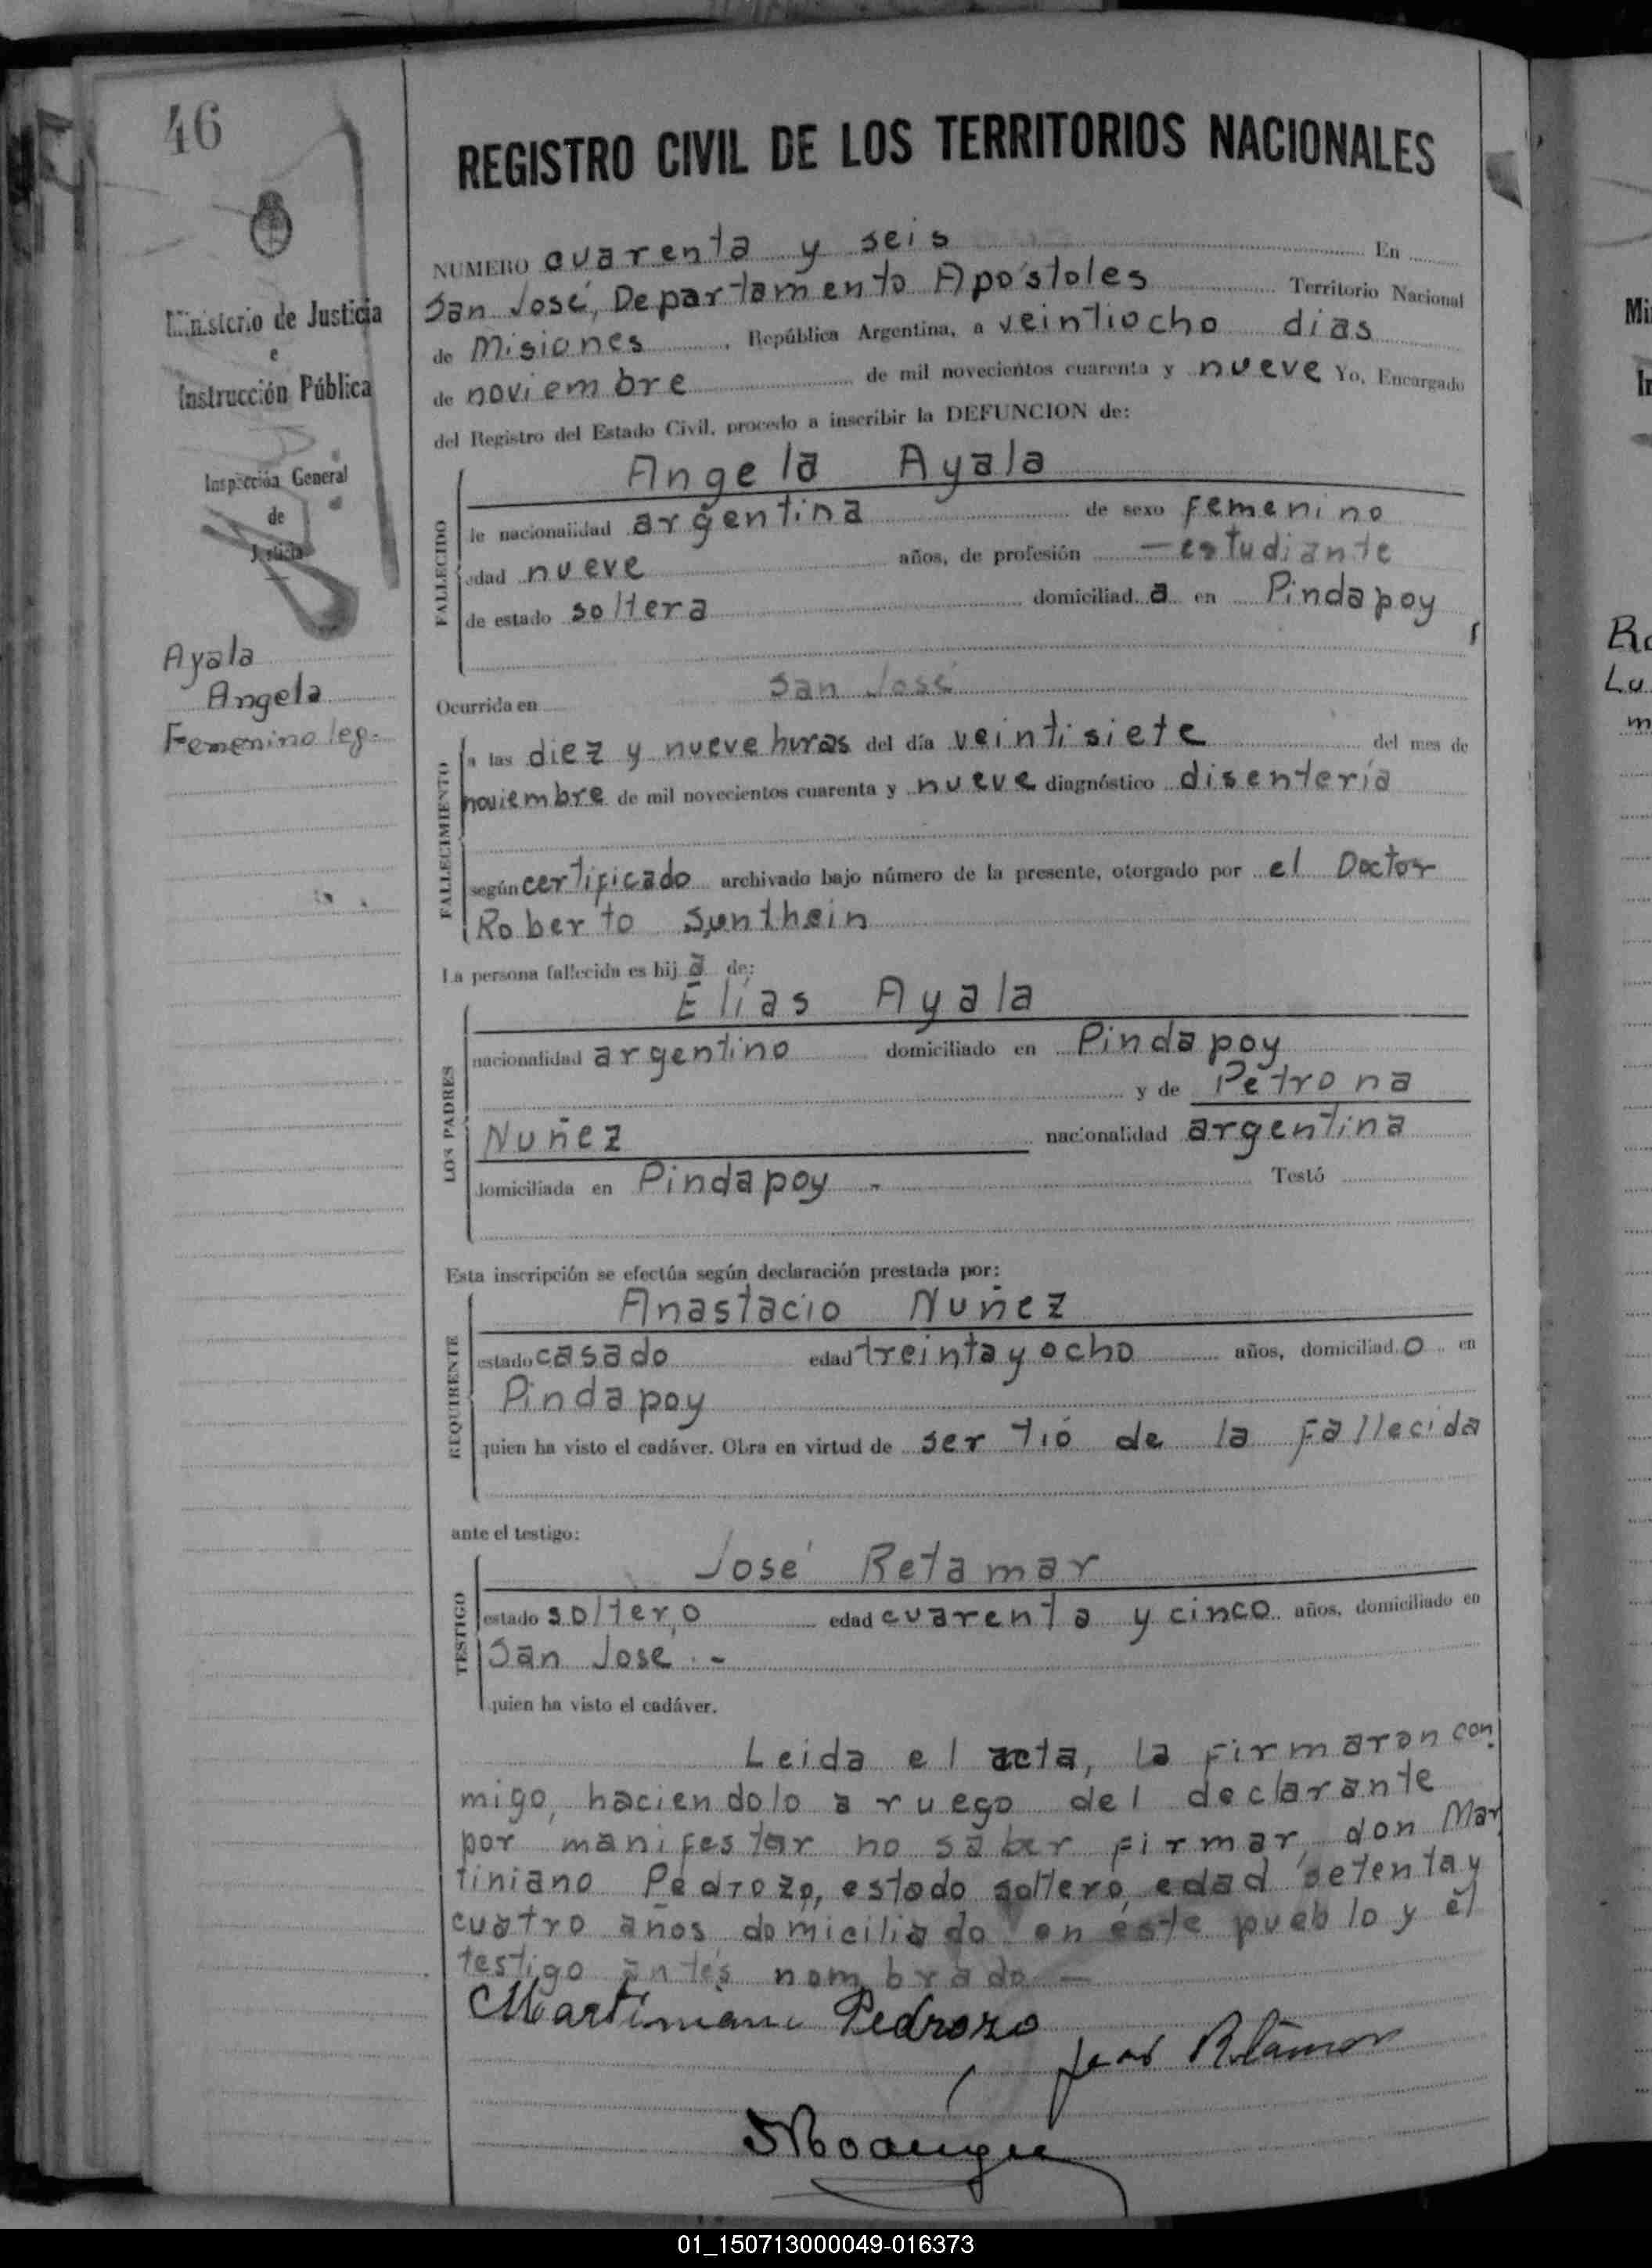 46
Ministerio de Justicia
e
Instrucción Pública
Inspección General
de
Justicia
Ayala
Angela
Femenino leg.
REGISTRO CIVIL DE LOS TERRITORIOS NACIONALES
NUMERO cuarenta y seis En
San José, Departamento Apóstoles Territorio Nacional
de Misiones, República Argentina, a veintiocho dias
de noviembre de mil novecientos cuarenta y nueve Yo, Encargado
del Registro del Estado Civil, procedo a inscribir la DEFUNCION de:
FALLECIDO
Angela Ayala
de nacionalidad argentina de sexo femenino
edad nueve años, de profesión — estudiante
de estado soltera domiciliad a en Pindapoy
Ocurrida en San José
FALLECIMIENTO
a las diez y nueve horas del día veintisiete del mes de
noviembre de mil novecientos cuarenta y nueve diagnóstico disentería
según certificado archivado bajo número de la presente, otorgado por el Doctor
Roberto Sunthein
La persona fallecida es hij a de:
LOS PADRES
Elías Ayala
nacionalidad argentino domiciliado en Pindapoy
y de Petrona
Nuñez nacionalidad argentina
domiciliada en Pindapoy - Testó
Esta inscripción se efectúa según declaración prestada por:
REQUIRENTE
Anastacio Nuñez
estado casado edad treinta y ocho años, domiciliad o en
Pindapoy
quien ha visto el cadáver. Obra en virtud de ser tió de la fallecida
ante el testigo:
TESTIGO
José Retamar
estado soltero edad cuarenta y cinco años, domiciliado en
San Jose .-
quien ha visto el cadáver.
Leida el acta, la firmaron con
migo, haciendolo a ruego del declarante
por manifestar no saber firmar, don Mar
tiniano Pedrozo, estado soltero, edad setenta y
cuatro años domiciliado en éste pueblo y el
testigo antes nombrado —
Martiniano Pedrozo
José Retamar
Mi
In
Lu
m
01_150713000049-016373